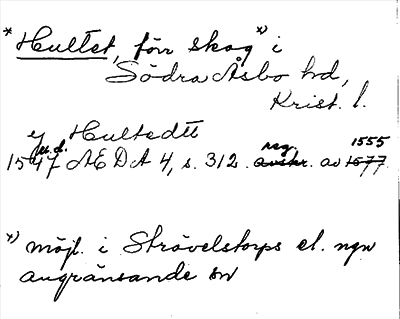 *Hultet, förr skog *) i
Södra Åsbo hd,
Krist. l.
ej Hultedtt
u.d. reg. 1555
1547 AEDA 4, s. 312. avskr. av 1577.
*) möjl. i Strövelstorps el. ngn
angränsande sn